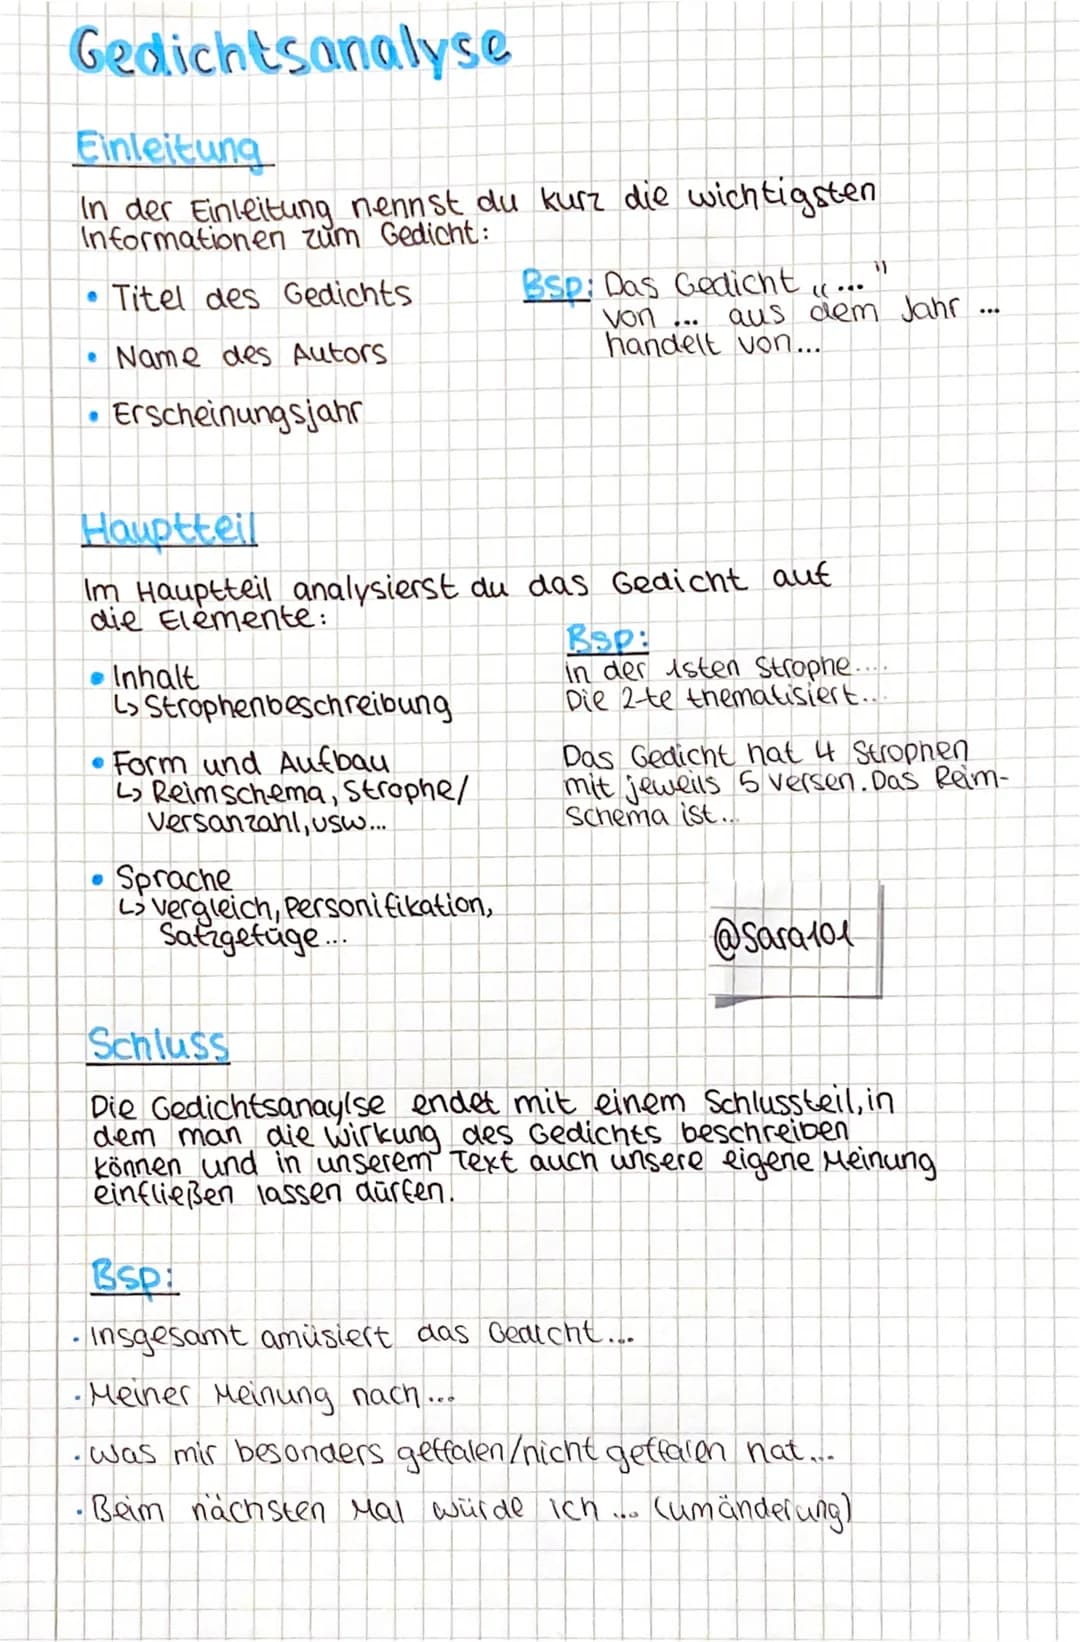 Gedichtsanalyse
Einleitung
In der Einleitung nennst du kurz die wichtigsten
Informationen zum Gedicht:
• Titel des Gedichts
• Name des Autors
• Erscheinungsjahr
Bsp: Das Gedicht „..."
von ... aus dem Jahr ...
handelt von...
Hauptteil
Im Hauptteil analysierst du das Gedicht auf
die Elemente:
• Inhalt
↳ Strophenbeschreibung
• Form und Aufbau
↳ Reimschema, Strophe/
Versanzahl, usw...
• Sprache
↳ vergleich, Personifikation,
Satzgefüge...
Bsp:
in der 1sten Strophe....
Die 2-te thematisiert...
Das Gedicht hat 4 Strophen
mit jeweils 5 versen. Das Reim-
schema ist...
@sara101
Schluss
Die Gedichtsanaylse endet mit einem Schlussteil, in
dem man die Wirkung des Gedichts beschreiben
können und in unserem Text auch unsere eigene Meinung
einfließen lassen dürfen.
Bsp:
· Insgesamt amüsiert das Gedicht...
· Meiner Meinung nach...
· was mir besonders geffalen/nicht geffalen hat...
· Beim nächsten Mal würde ich ... (umänderung)